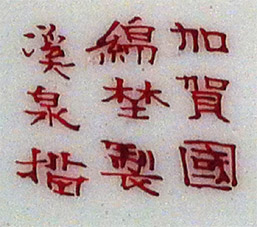 加賀國
綿埜製
溪泉描